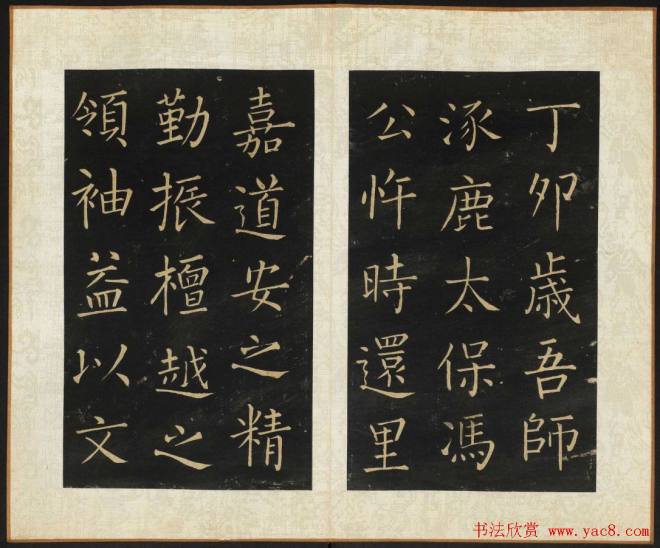 丁卯歲吾師
涿鹿太保馮
公忤時還里
嘉道安之精
勤振檀越之
領袖益以文
书法欣赏 www.yac8.com